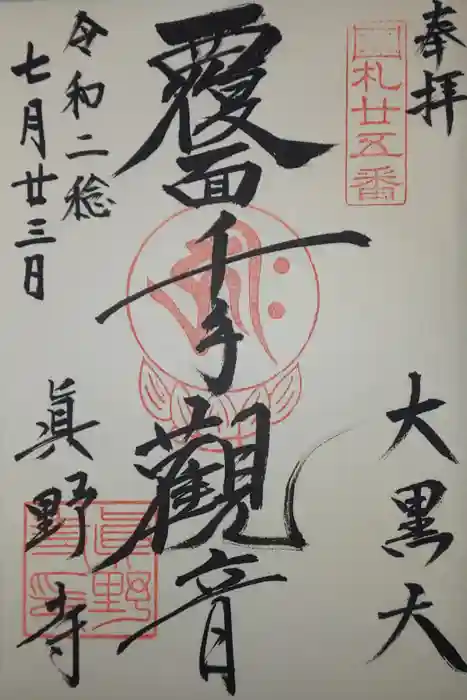 奉拝
大黒天
国札廿五番
覆面千手觀音
令和二稔
七月廿三日
眞野寺
眞野寺印